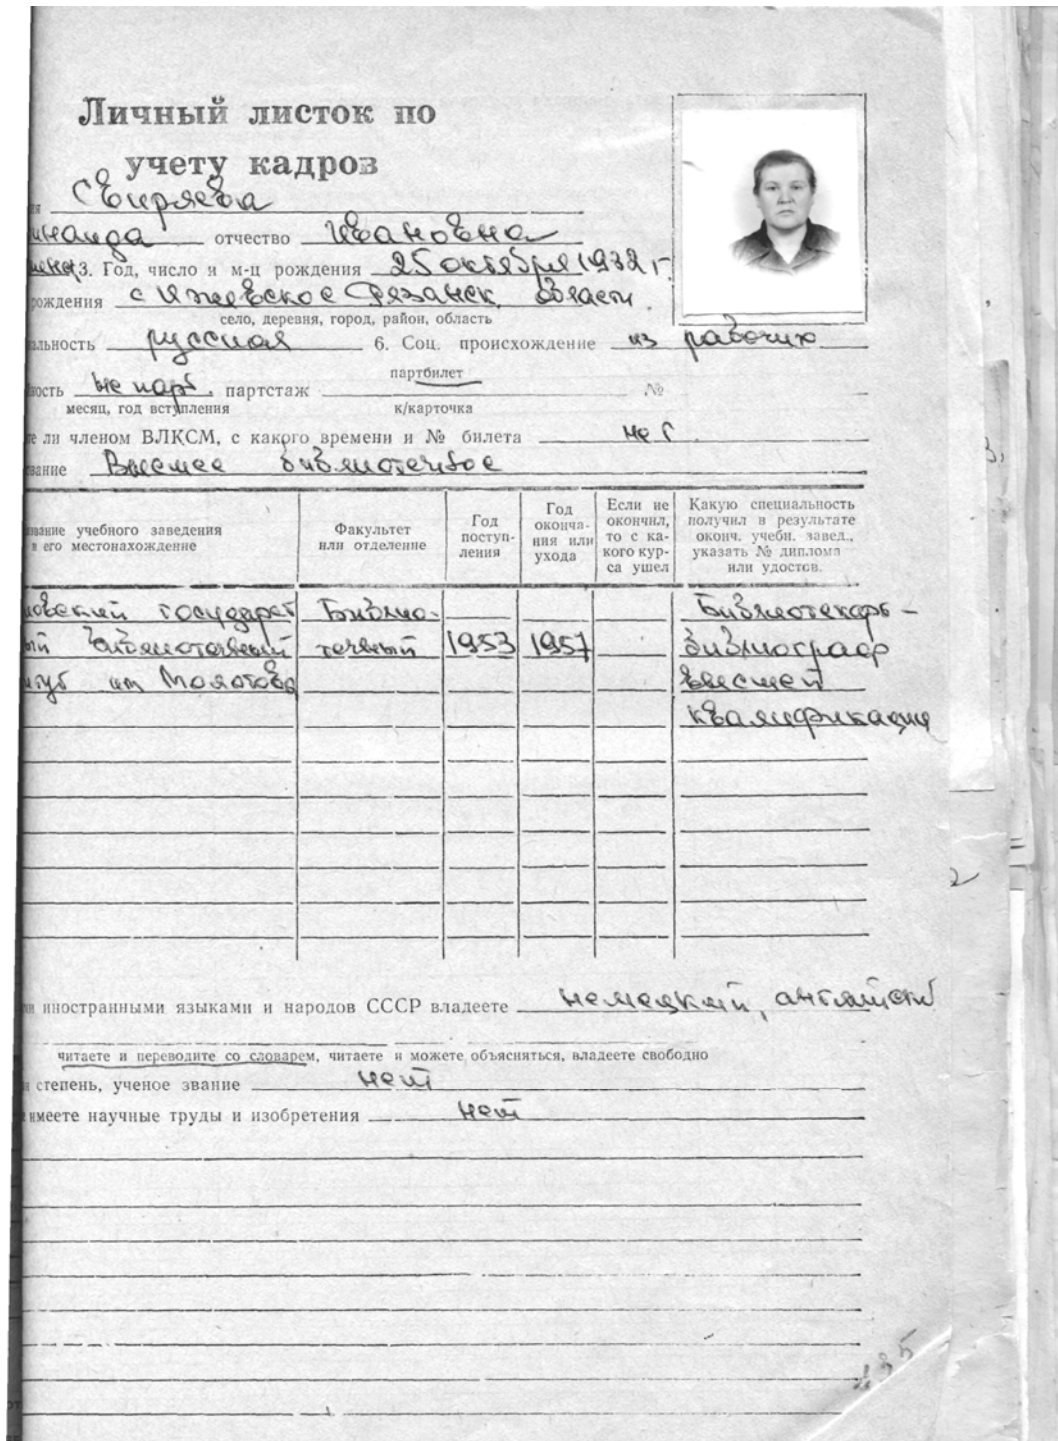 Личный листок по
учету кадров
Свиряева
отчество Ивановна
3. Год, число и м-ц рождения 25 октября 1932 г.
рождения с Ижевское Рязанск. области
село, деревня, город, район, область
альность русская 6. Соц. происхождение из рабочих
партбилет
ность не парт. партстаж №
месяц, год вступления к/карточка
те ли членом ВЛКСМ, с какого времени и № билета нет.
вание Высшее библиотечное
звание учебного заведения и его местонахождение
Факультет или отделение
Год поступ- ления
Год оконча- ния или ухода
Если не окончил, то с ка- кого кур- са ушел
Какую специальность получил в результате оконч. учебн. завед., указать № диплома или удостов.
овский государст Библио- Библиотекарь -
ый библиотечный течный 1953 1957 библиограф
итут им Молотова высшей
квалификации
ми иностранными языками и народов СССР владеете немецкий, английский
читаете и переводите со словарем, читаете и можете объясняться, владеете свободно
я степень, ученое звание нет
имеете научные труды и изобретения нет
2